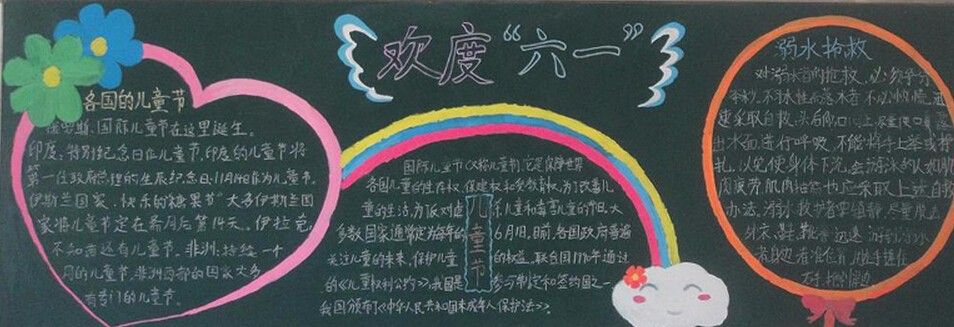 欢度“六一”
各国的儿童节
俄罗斯：国际儿童节在这里诞生。
印度：特别纪念日位儿童节,印度的儿童节将
第一任政府总理的生辰纪念日11月14日作为儿童节。
伊斯兰国家：快乐的“糖果节”大多伊斯兰国
家将儿童节定在斋月后第14天。伊拉克,
不知道还有儿童节。非洲：持续一个
月的儿童节,非洲西部的国家大多
有专门的儿童节。
儿童节
国际儿童节(又称儿童节),它是保障世界
各国儿童的生存权、保健权和受教育权,为了改善儿
童的生活,为反对虐杀儿童和毒害儿童的节日。大
多数国家通常定为每年的6月1日。目前,各国政府普遍
关注儿童的未来,保护儿童的权益。联合国1990年通过
的《儿童权利公约》,我国是参与制定和签约国之一
我国颁布了《中华人民共和国未成年人保护法》。
溺水抢救
对溺水者的抢救,必须争分
夺秒,不习水性而落水者不必惊慌,迅
速采取自救：头后仰口向上,尽量使口鼻露
出水面,进行呼吸,不能将手上举或挣
扎,以免使身体下沉。会游泳的人如肌
肉疲劳,肌肉抽筋也应采取上述自救
办法。